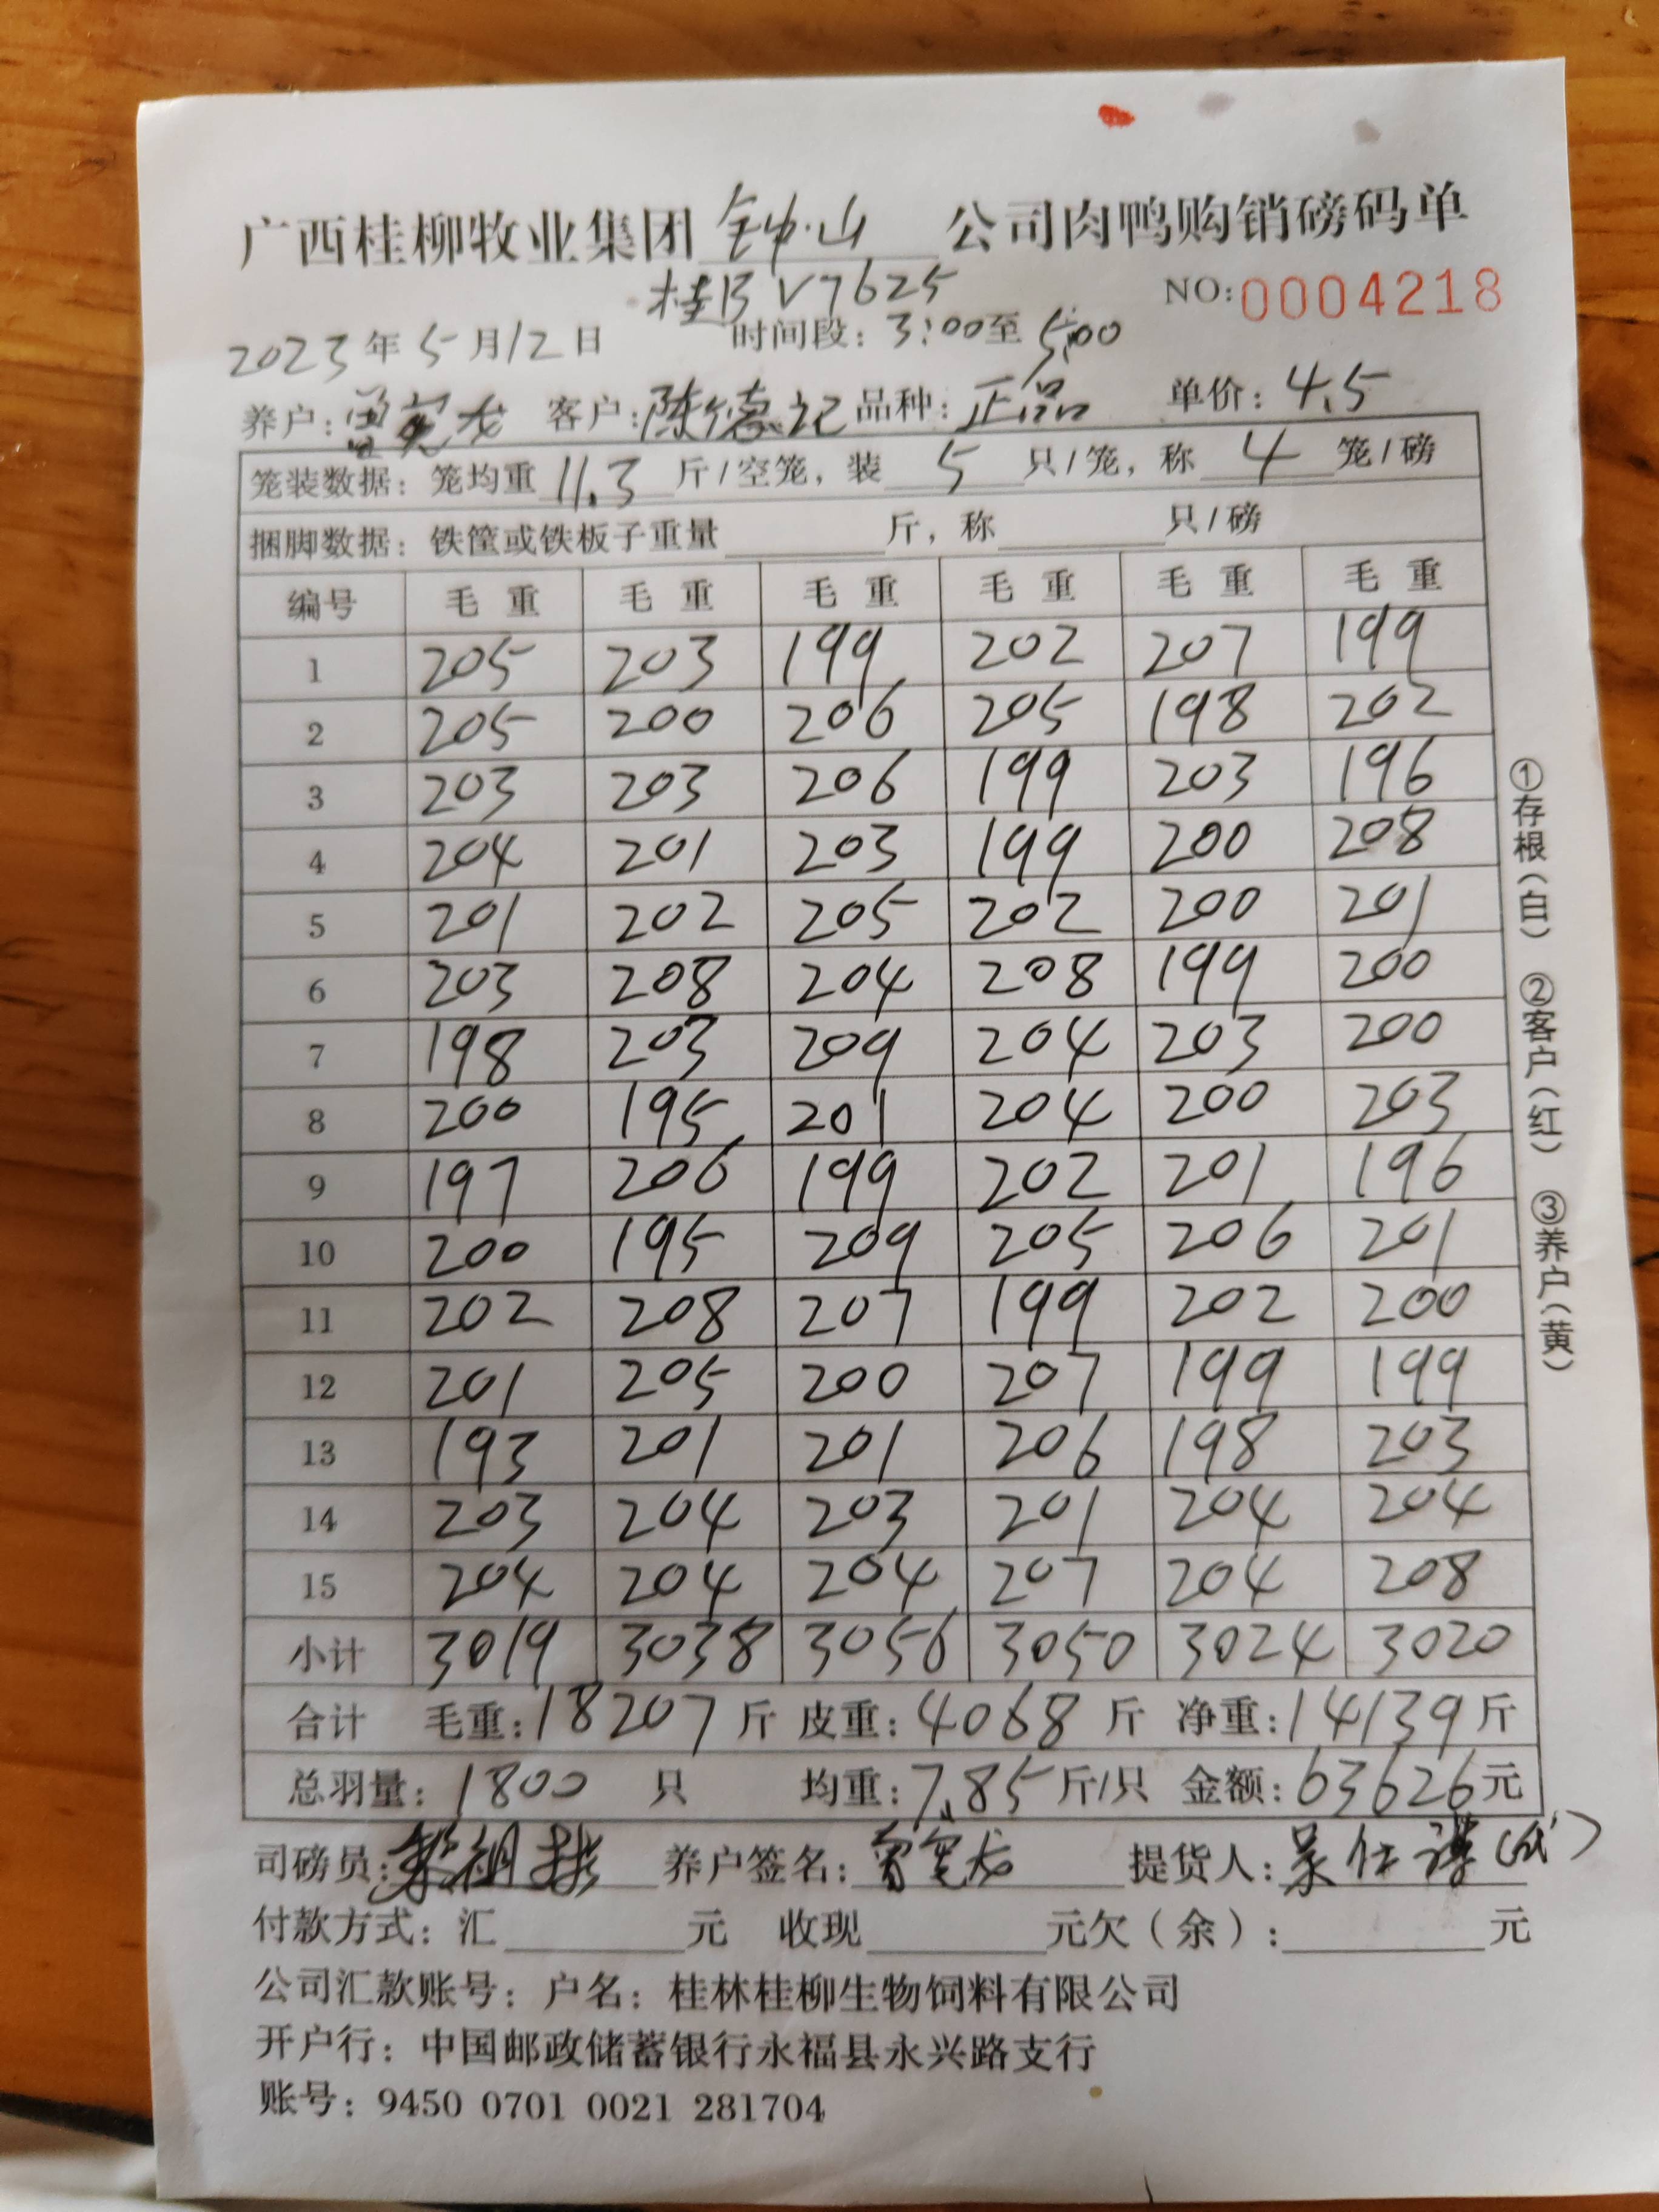 广西桂柳牧业集团 钟山 公司肉鸭购销磅码单
桂B V7625 NO:0004218
2023年5月12日 时间段:3:00至5:00
养户:曾宪龙 客户:陈德记 品种:正品 单价:4.5
笼装数据:笼均重 11.3 斤/空笼,装 5 只/笼,称 4 笼/磅
捆脚数据:铁筐或铁板子重量 斤,称 只/磅
编号 毛重 毛重 毛重 毛重 毛重 毛重
1 205 203 199 202 207 199
2 205 200 206 205 198 202
3 203 203 206 199 203 196
4 204 201 203 199 200 208
5 201 202 205 202 200 201
6 203 208 204 208 199 200
7 198 203 209 204 203 200
8 200 195 201 204 200 203
9 197 206 199 202 201 196
10 200 195 209 205 206 201
11 202 208 207 199 202 200
12 201 205 200 207 199 199
13 193 201 201 206 198 203
14 203 204 203 201 204 204
15 204 204 204 207 204 208
小计 3019 3038 3056 3050 3024 3020
合计 毛重:18207斤 皮重:4068斤 净重:14139斤
总羽量:1800 只 均重:7.85斤/只 金额:63626元
司磅员: 养户签名:曾宪龙 提货人:吴仕谋(代)
付款方式:汇 元 收现 元欠(余): 元
公司汇款账号:户名:桂林桂柳生物饲料有限公司
开户行:中国邮政储蓄银行永福县永兴路支行
账号:9450 0701 0021 281704
①存根(白) ②客户(红) ③养户(黄)